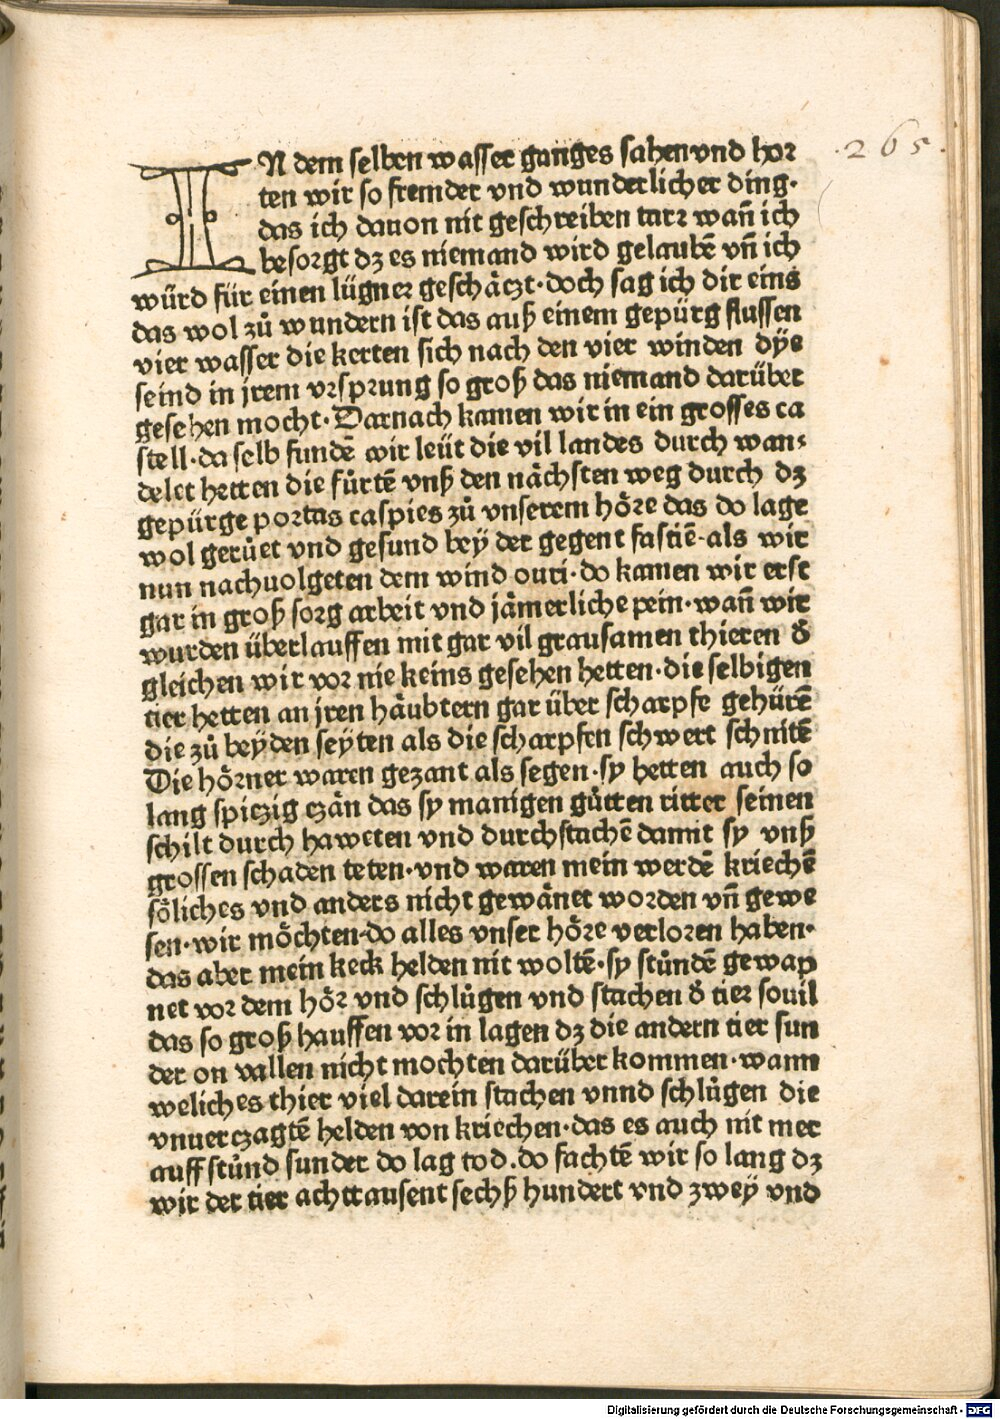 .265.
IN dem selben wasser ganges sahen vnd hor
ten wir so fremder vnd wunderlicher ding·
das ich dauon nit geschreiben tarz wañ ich
besorgt dz es niemand wird gelaubē vñ ich
würd für einen lügner geschäczt·doch sag ich dir eins
das wol zů wundern ist das auß einem gepürg flussen
vier wasser die kerten sich nach den vier winden dÿe
seind in jrem vrsprung so groß das niemand darüber
gesehen mocht·Darnach kamen wir in ein grosses ca
stell·da selb fundē wir leüt die vil landes durch wan⸗
delet hetten die fůrtē vnß den nächsten weg durch dz
gepürge portas caspies zů vnserem höre das do lage
wol gerůet vnd gesund beÿ der gegent fastiē·als wir
nun nachuolgeten dem wind ouri·do kamen wir erst
gar in groß sorg arbeit vnd jämerliche pein·wañ wir
wurden überlauffen mit gar vil grausamen thieren d̄
gleichen wir vor nie keins gesehen hetten·die selbigen
tier hetten an jren häubtern gar über scharpfe gehürē
die zů beÿden seÿten als die scharpfen schwert schnitē
Die hörner waren gezant als segen·sy hetten auch so
lang spiczig czän das sy manigen gůtten ritter seinen
schilt durch haweten vnd durchstachē damit sy vnß
grossen schaden teten·vnd waren mein werdē kriechē
söliches vnd anders nicht gewänet worden vñ gewe
sen·wir möchten·do alles vnser höre verloren haben·
das aber mein keck helden nit woltē·sy stůndē gewap
net vor dem hör vnd schlůgen vnd stachen d̄ tier souil
das so groß hauffen vor in lagen dz die andern tier sun
der on vallen nicht mochten darüber kommen·wann
weliches thier viel darein stachen vnnd schlůgen die
vnuerczagtē helden von kriechen·das es auch nit mer
auff stůnd sunder do lag tod.do fachtē wir so lang dz
wir der tier achttausent sechß hundert vnd zweÿ vnd
Digitalisierung gefördert durch die Deutsche Forschungsgemeinschaft - DFG